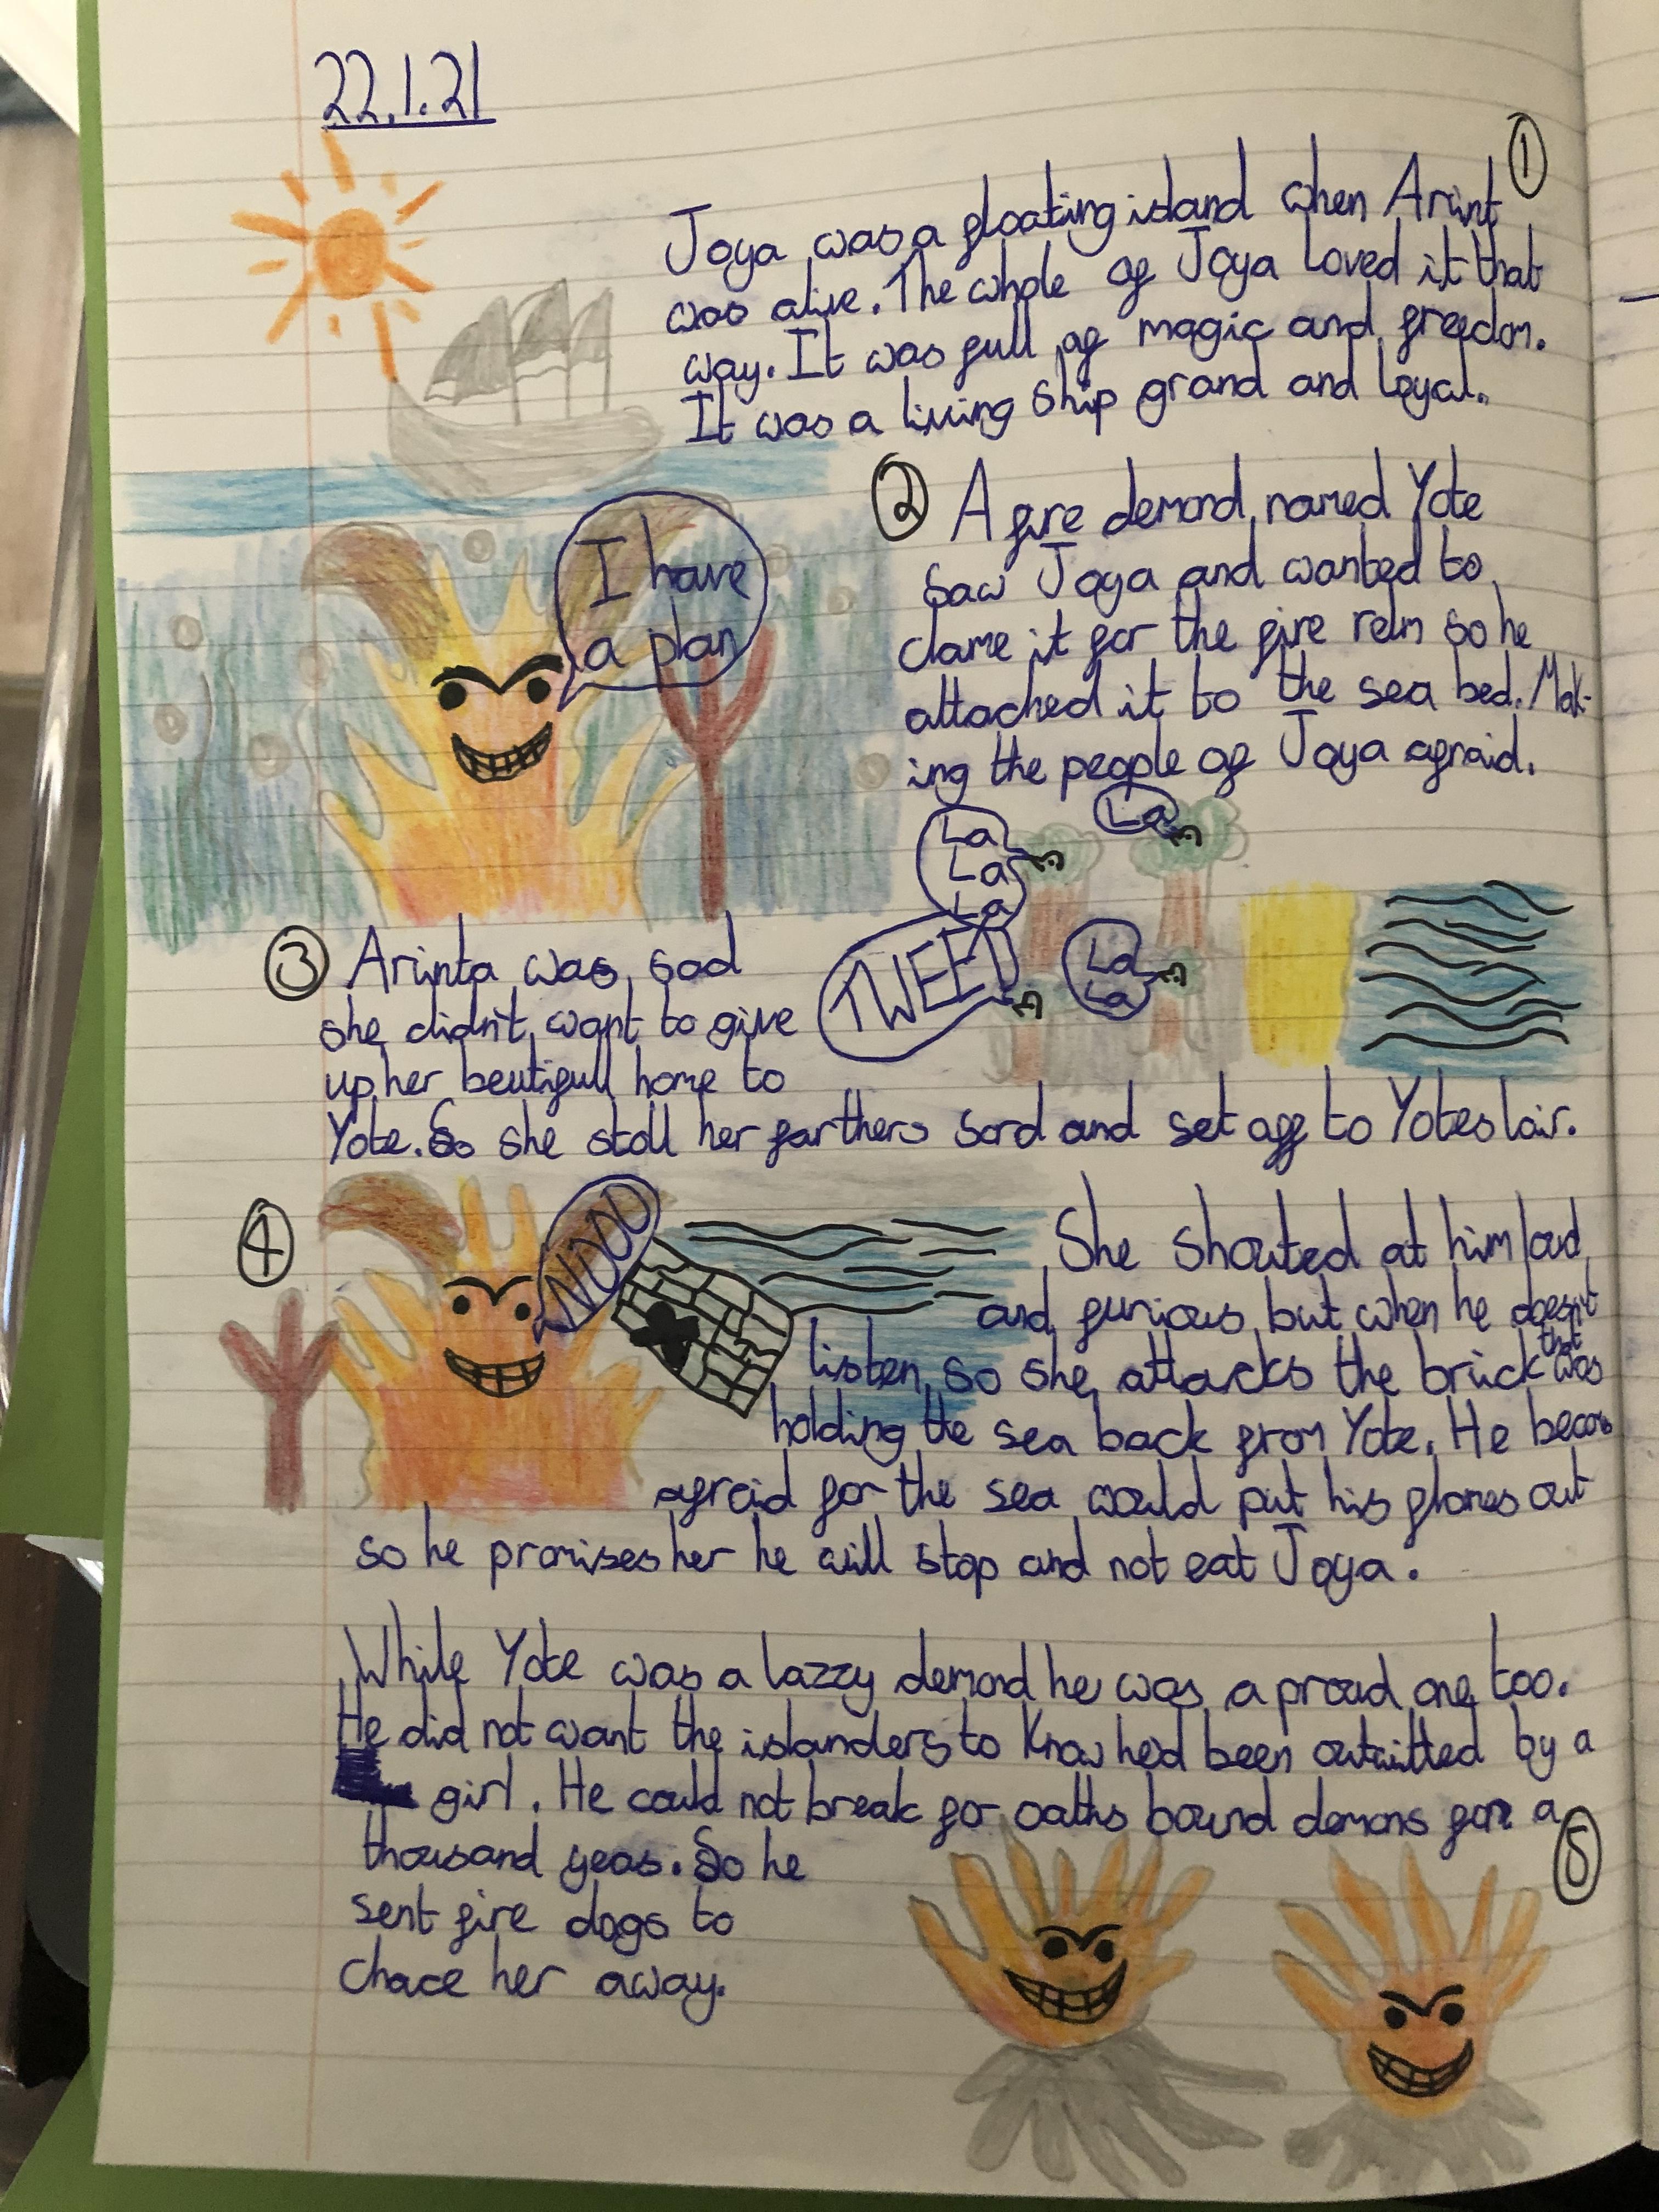 22.1.21
①
Joya was a floating island when Arint
was alive. The whole of Joya loved it that
way. It was full of magic and freedom.
It was a living ship grand and loyal.
I have
a plan
② A fire demond named Yote
saw Joya and wanted to
clame it for the fire relm so he
attached it to the sea bed. Mak-
ing the people of Joya afraid.
La
La
La
La
TWEET
La
La
③ Arinta was sad
she didn't want to give
up her beutifull home to
Yote. So she stoll her farthers sord and set off to Yotes lair.
④
NOOO
She shouted at him loud
and furious but when he doesn't
listen so she attacks the brick that was
holding the sea back from Yote. He becoms
afraid for the sea would put his flames out
so he promises her he will stop and not eat Joya.
While Yote was a lazzy demond he was a proud one too.
He did not want the islanders to know he'd been outwitted by a
girl. He could not break for oaths bound demons for a
thousand yeas. So he
sent fire dogs to
chace her away.
⑤